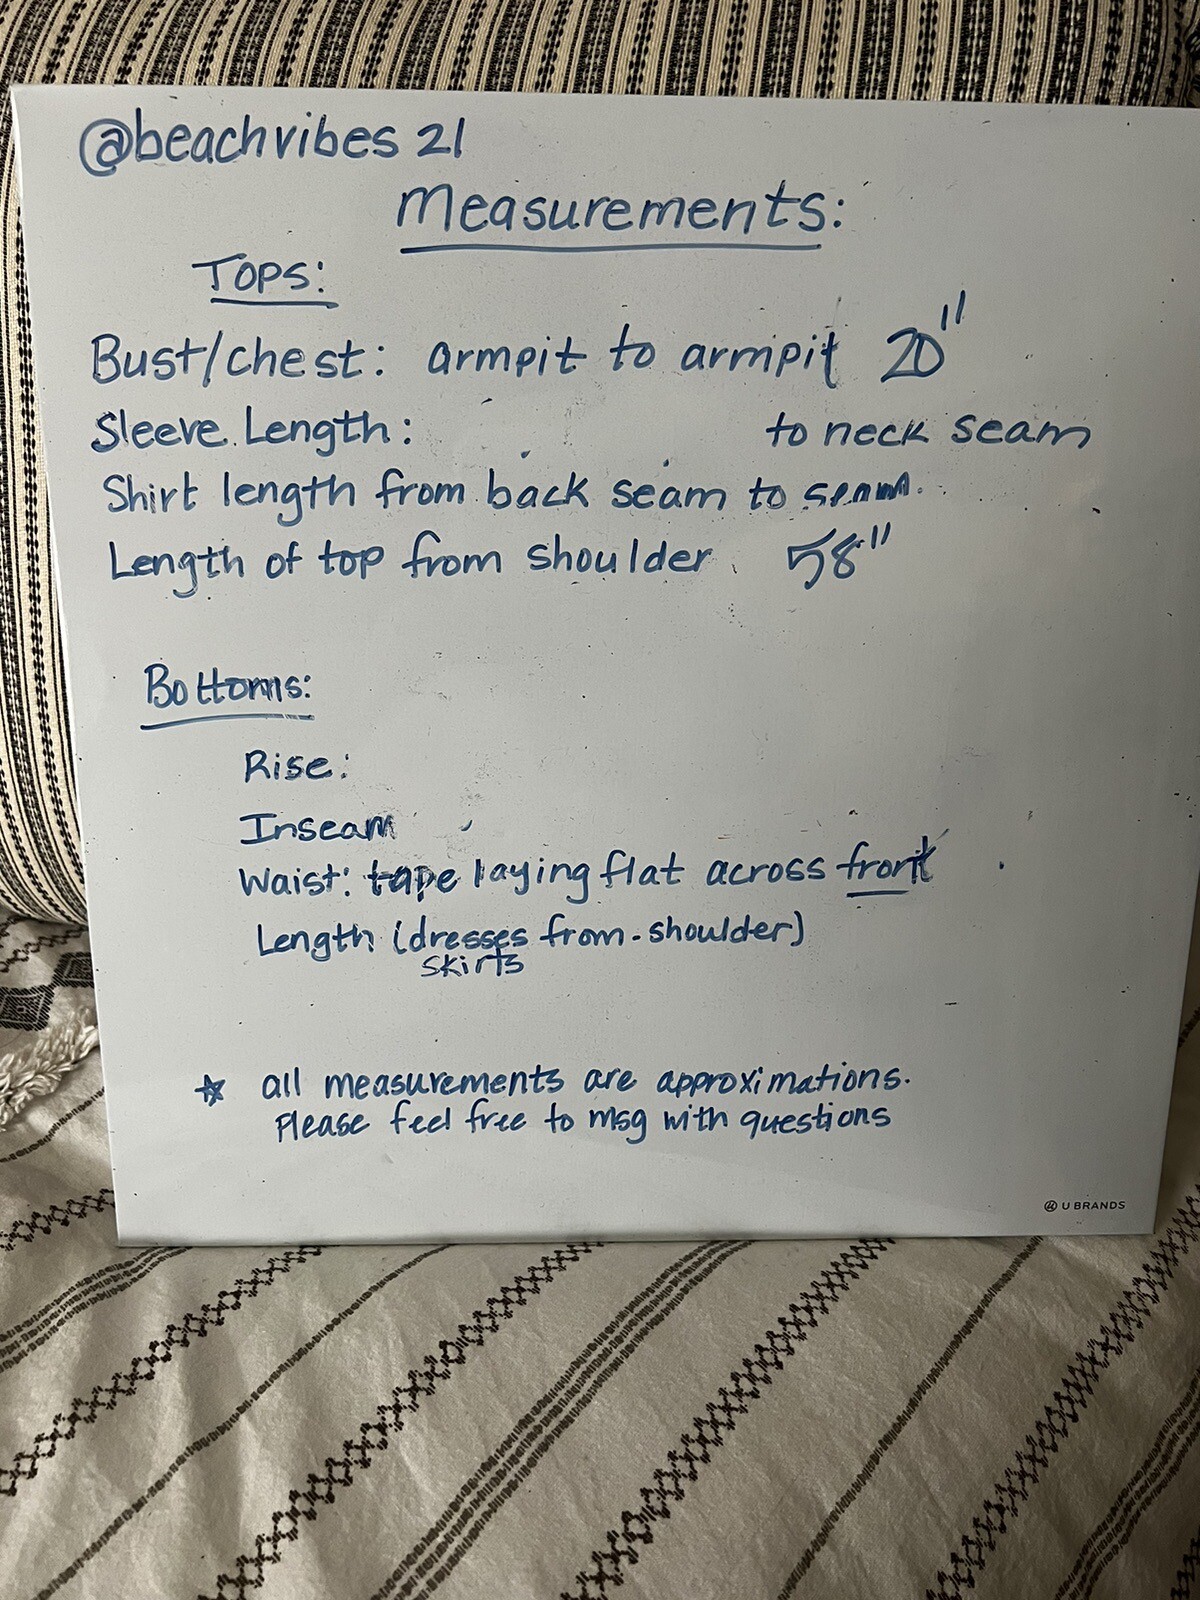 @beachvibes 21
Measurements:
Tops:
Bust/chest: armpit to armpit 20"
Sleeve Length: to neck seam
Shirt length from back seam to seam.
Length of top from shoulder 58"
Bottoms:
Rise:
Inseam
Waist: tape laying flat across front
Length (dresses from shoulder)
skirts
☆ all measurements are approximations.
Please feel free to msg with questions
U BRANDS